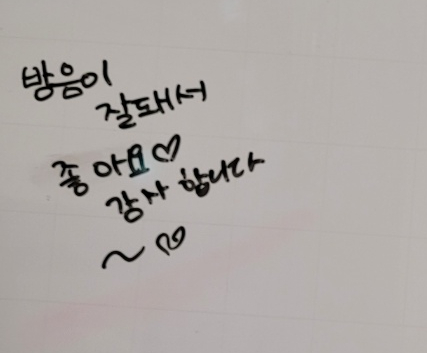 방음이
잘돼서
좋아요♡
감사합니다
~♡